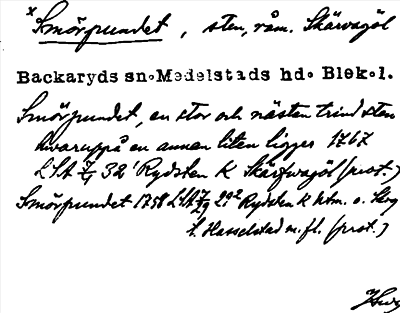 x Smörpundet, sten, råm. Skärvagöl
Backaryds sn. Medelstads hd. Blek.l.
Smörpundet, en stor och nästan trind sten
hvaruppå en annan liten ligger 1767
LSA 32¹ Rydsten K Skärfwagöl (prot.)
Smörpundet 1758 LSA 29² Rydsten K htm. o. Skog
t. Hasselstad m.fl. (prot.)